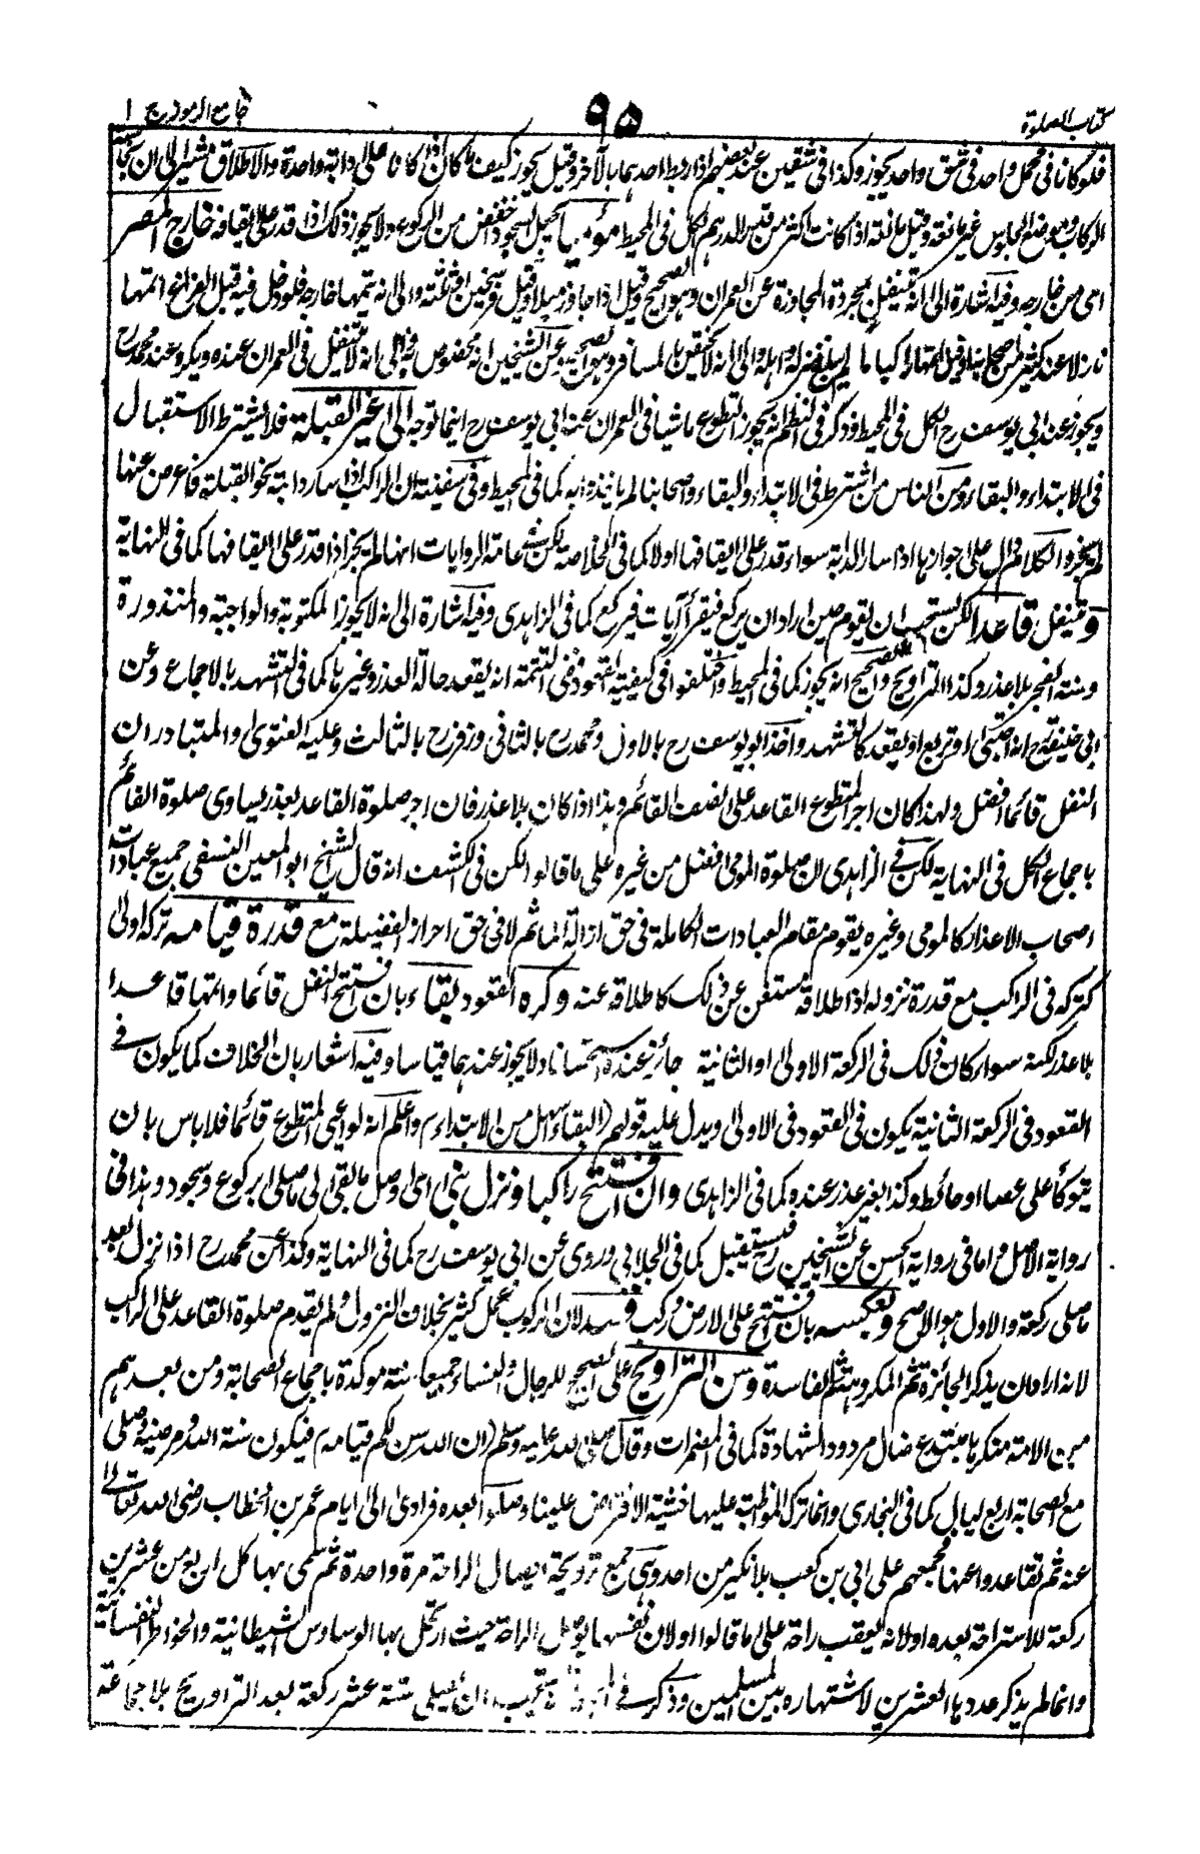 كتاب الصلوة
٩٥
جامع الرموز ج ١
فلو كانا فى محمل واحد فى شق واحد يجوز وكذا فى شقين عند بعضهم اذا ربط احدهما بالآخر وقيل يجوز كيف ما كان اذا كانا على دابة واحدة والاطلاق مشير الى ان نجاسة
الركاب وموضع الجلوس غير مانعة وقيل مانعة اذا كانت اكثر من قدر الدرهم الكل فى المحيط مؤميا يجعل السجود اخفض من الركوع ولا يجوز ذلك اذا قدر على ايقافه خارج المصر
اى من خارجه وفيه اشارة الى انه يتنفل بمجردة المجاوزة عن العمران وهو الصحيح وقيل اذا جاوز ميلا وقيل فرسخين او ثلثة والى انه يتمها خارجه فلو دخل فيه قبل الفراغ اتمها
نازلا عند كثير من اصحابنا وقيل اتمها راكبا ما لم يبلغ منزله واهله والى انه لا يختص بالمسافر وهو الصحيح وعن الشيخين انه مخصوص به والى انه لا يتنفل فى العمران عنده ويكره عند محمد رح
ويجوز عند ابى يوسف رح الكل فى المحيط وذكر فى النظم انه يجوز التطوع ماشيا فى العمران عند ابى يوسف رح اينما توجه الى غير القبلة فلا يشترط الاستقبال
فى الابتداء والبقاء ومن الناس من اشترط فى الابتداء والبقاء واصحابنا لم ياخذوا به كما فى المحيط وفى سفينة ان الراكب اذا سار دابة نحو القبلة فاعرض عنها
لم يجز والكلام دال على جوازها اذا سار الدابة سواء قدر على ايقافها اولا كما فى الخلاصة لكن فى عامة الروايات انها لم يجز اذا قدر على ايقافها كما فى النهاية
ويتنفل قاعدا لكن يستحب ان يقوم حين اراد ان يركع فيقرأ آيات فيركع كما فى الزاهدى وفيه اشارة الى انه لا يجوز المكتوبة والواجبة والمنذورة
وسنة الفجر بلا عذر وكذا التراويح والصحيح انه يجوز كما فى المحيط واختلفوا فى كيفية القعود ففى التتمة انه يقعد حالة العذر وغيرها كما فى التشهد بالاجماع وعن
ابى حنيفة رح انه احتبى او تربع او يقعد كالتشهد واخذ ابو يوسف رح بالاول ومحمد رح بالثانى وزفر رح بالثالث وعليه الفتوى والمتبادر ان
النفل قائما افضل ولهذا كان اجر المتطوع القاعد على النصف القائم وهذا اذا كان بلا عذر فان اجر صلوة القاعد بعذر يساوى صلوة القائم
باجماع الكل فى النهاية لكن فى الزاهدى ان صلوة المومى افضل من غيره على ما قالوا لكن فى الكشف انه قال الشيخ ابو المعين النسفى جميع عبادات
اصحاب الاعذار كالمومى وغيره يقوم مقام العبادات الكاملة فى حق ازالة الماثم لا فى حق احراز الفضيلة مع قدرة قيامه تركه اولى
كتركه فى الراكب مع قدرة نزوله اذ اطلاقه مستغن عن ذلك كاطلاقه عنه وكره القعود بقاء بان افتتح النفل قائما واتمها قاعدا
بلا عذر لكنه سواء كان ذلك فى الركعة الاولى او الثانية جائز عنده استحسانا ولا يجوز عندهما قياسا وفيه اشعار بان الخلاف كما يكون فى
القعود فى الركعة الثانية يكون فى القعود فى الاولى ويدل عليه قولهم (البقاء اسهل من الابتداء) م واعلم انه لو اعى المتطوع قائما فلا باس بان
يتوكأ على عصا او حائط وكذا بغير عذر عنده كما فى الزاهدى وان افتتح راكبا ونزل بنى اى اوصل ما بقى الى ما صلى بركوع وسجود وهذا فى
رواية الاصل و اما فى رواية الحسن عن الشيخين رح فيستقبل كما فى الجلابى وروى عن ابى يوسف رح كما فى النهاية وكذا عن محمد رح اذا نزل بعد
ما صلى ركعة والاول هو الاصح وبعكسه بان افتتح على الارض وركب فسد لان الركوب عمل كثير بخلاف النزول ولم يقدم صلوة القاعد على الراكب
لانه اراد ان يذكر الجائزة ثم المكروهة ثم الفاسدة وسن التراويح على الصحيح للرجال والنساء جميعا سنة موكدة باجماع الصحابة ومن بعدهم
من الامة منكرها مبتدع ضال مردود الشهادة كما فى المضمرات وقال صلى الله عليه وسلم (ان الله سن لكم قيامه) م فيكون سنة الله ومرضيته وصلى
مع الصحابة اربع ليال كما فى البخارى وانما ترك المواظبة عليها خشية الافتراض علينا وصلوا بعده فرادى الى ايام عمر بن الخطاب رضى الله تعالى
عنه ثم تقاعدوا عنها فجمعهم على ابى بن كعب بلا نكير من احد وهى جمع ترويحة ايصال الراحة مرة واحدة ثم سمى بها كل اربع من عشرين
ركعة للاستراحة بعده او لانه يعقب راحة على ما قالوا او لان نفسها يوصل الراحة حيث ارتحل بها الوساوس الشيطانية والخواطر النفسانية
وانما لم يذكر عددها العشرين لاشتهاره بين المسلمين وذكر فى يستحب ان يصلى ستة عشر ركعة بعد التراويح بلا جماعة